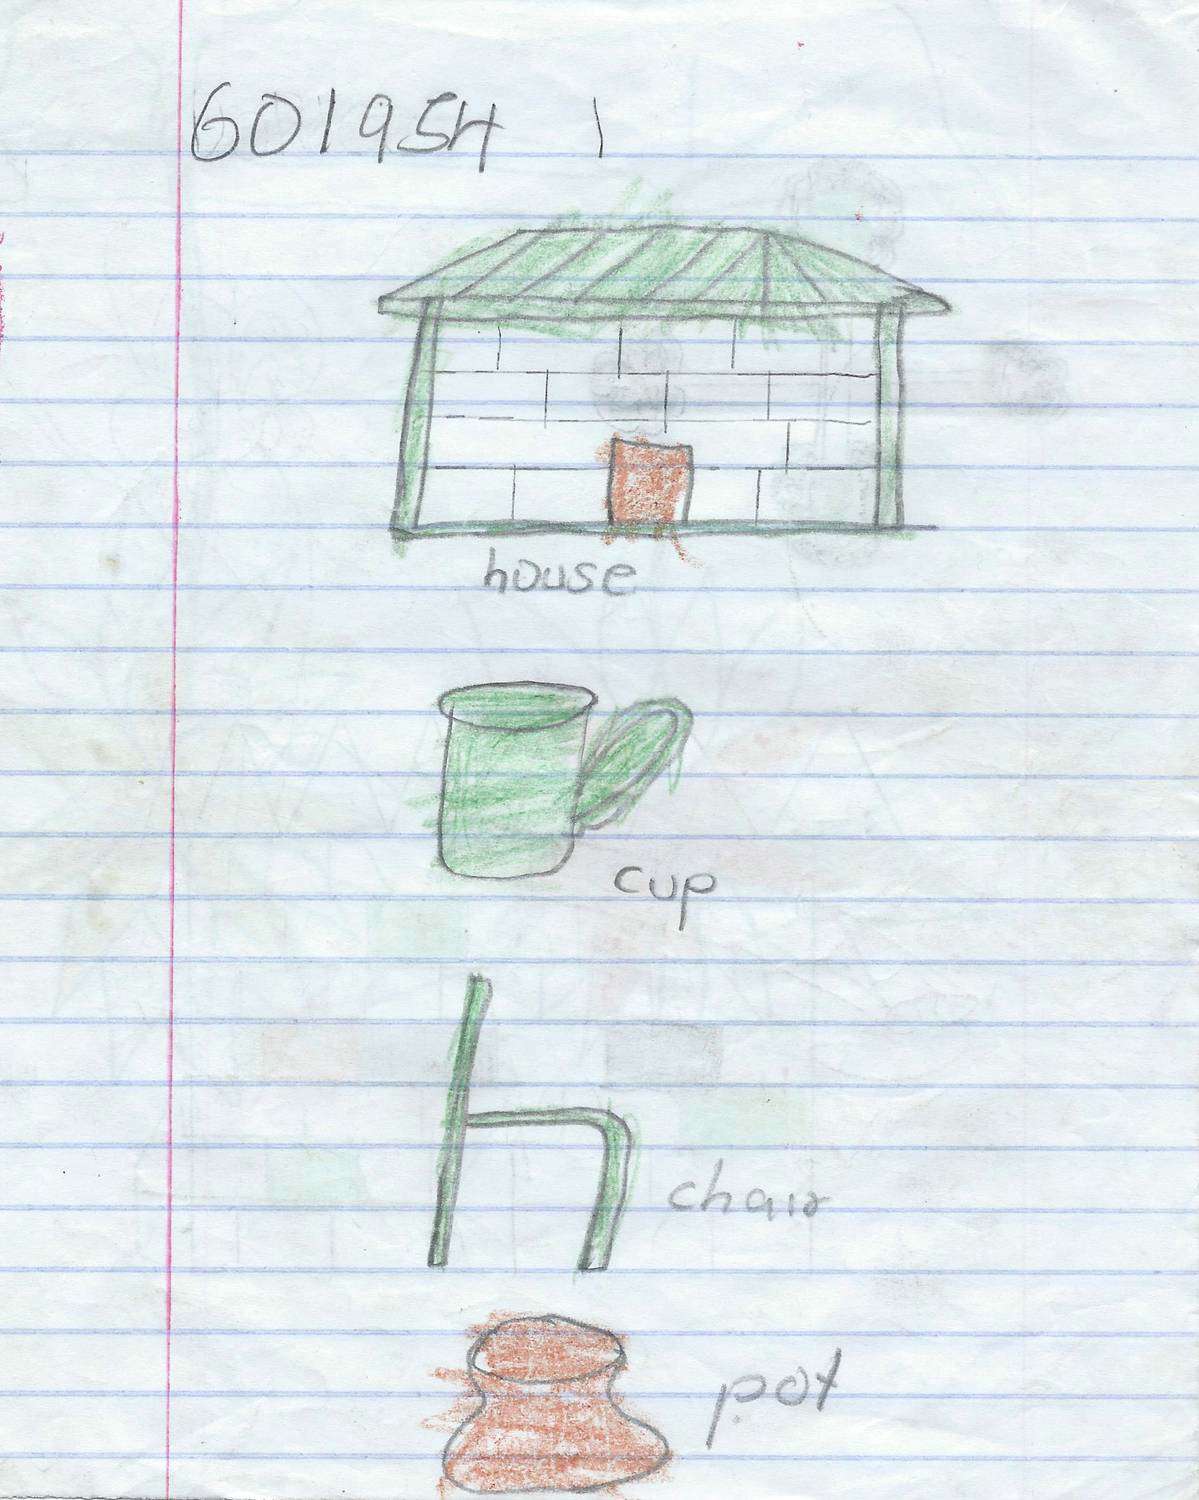 601954 1
house
cup
chair
pot